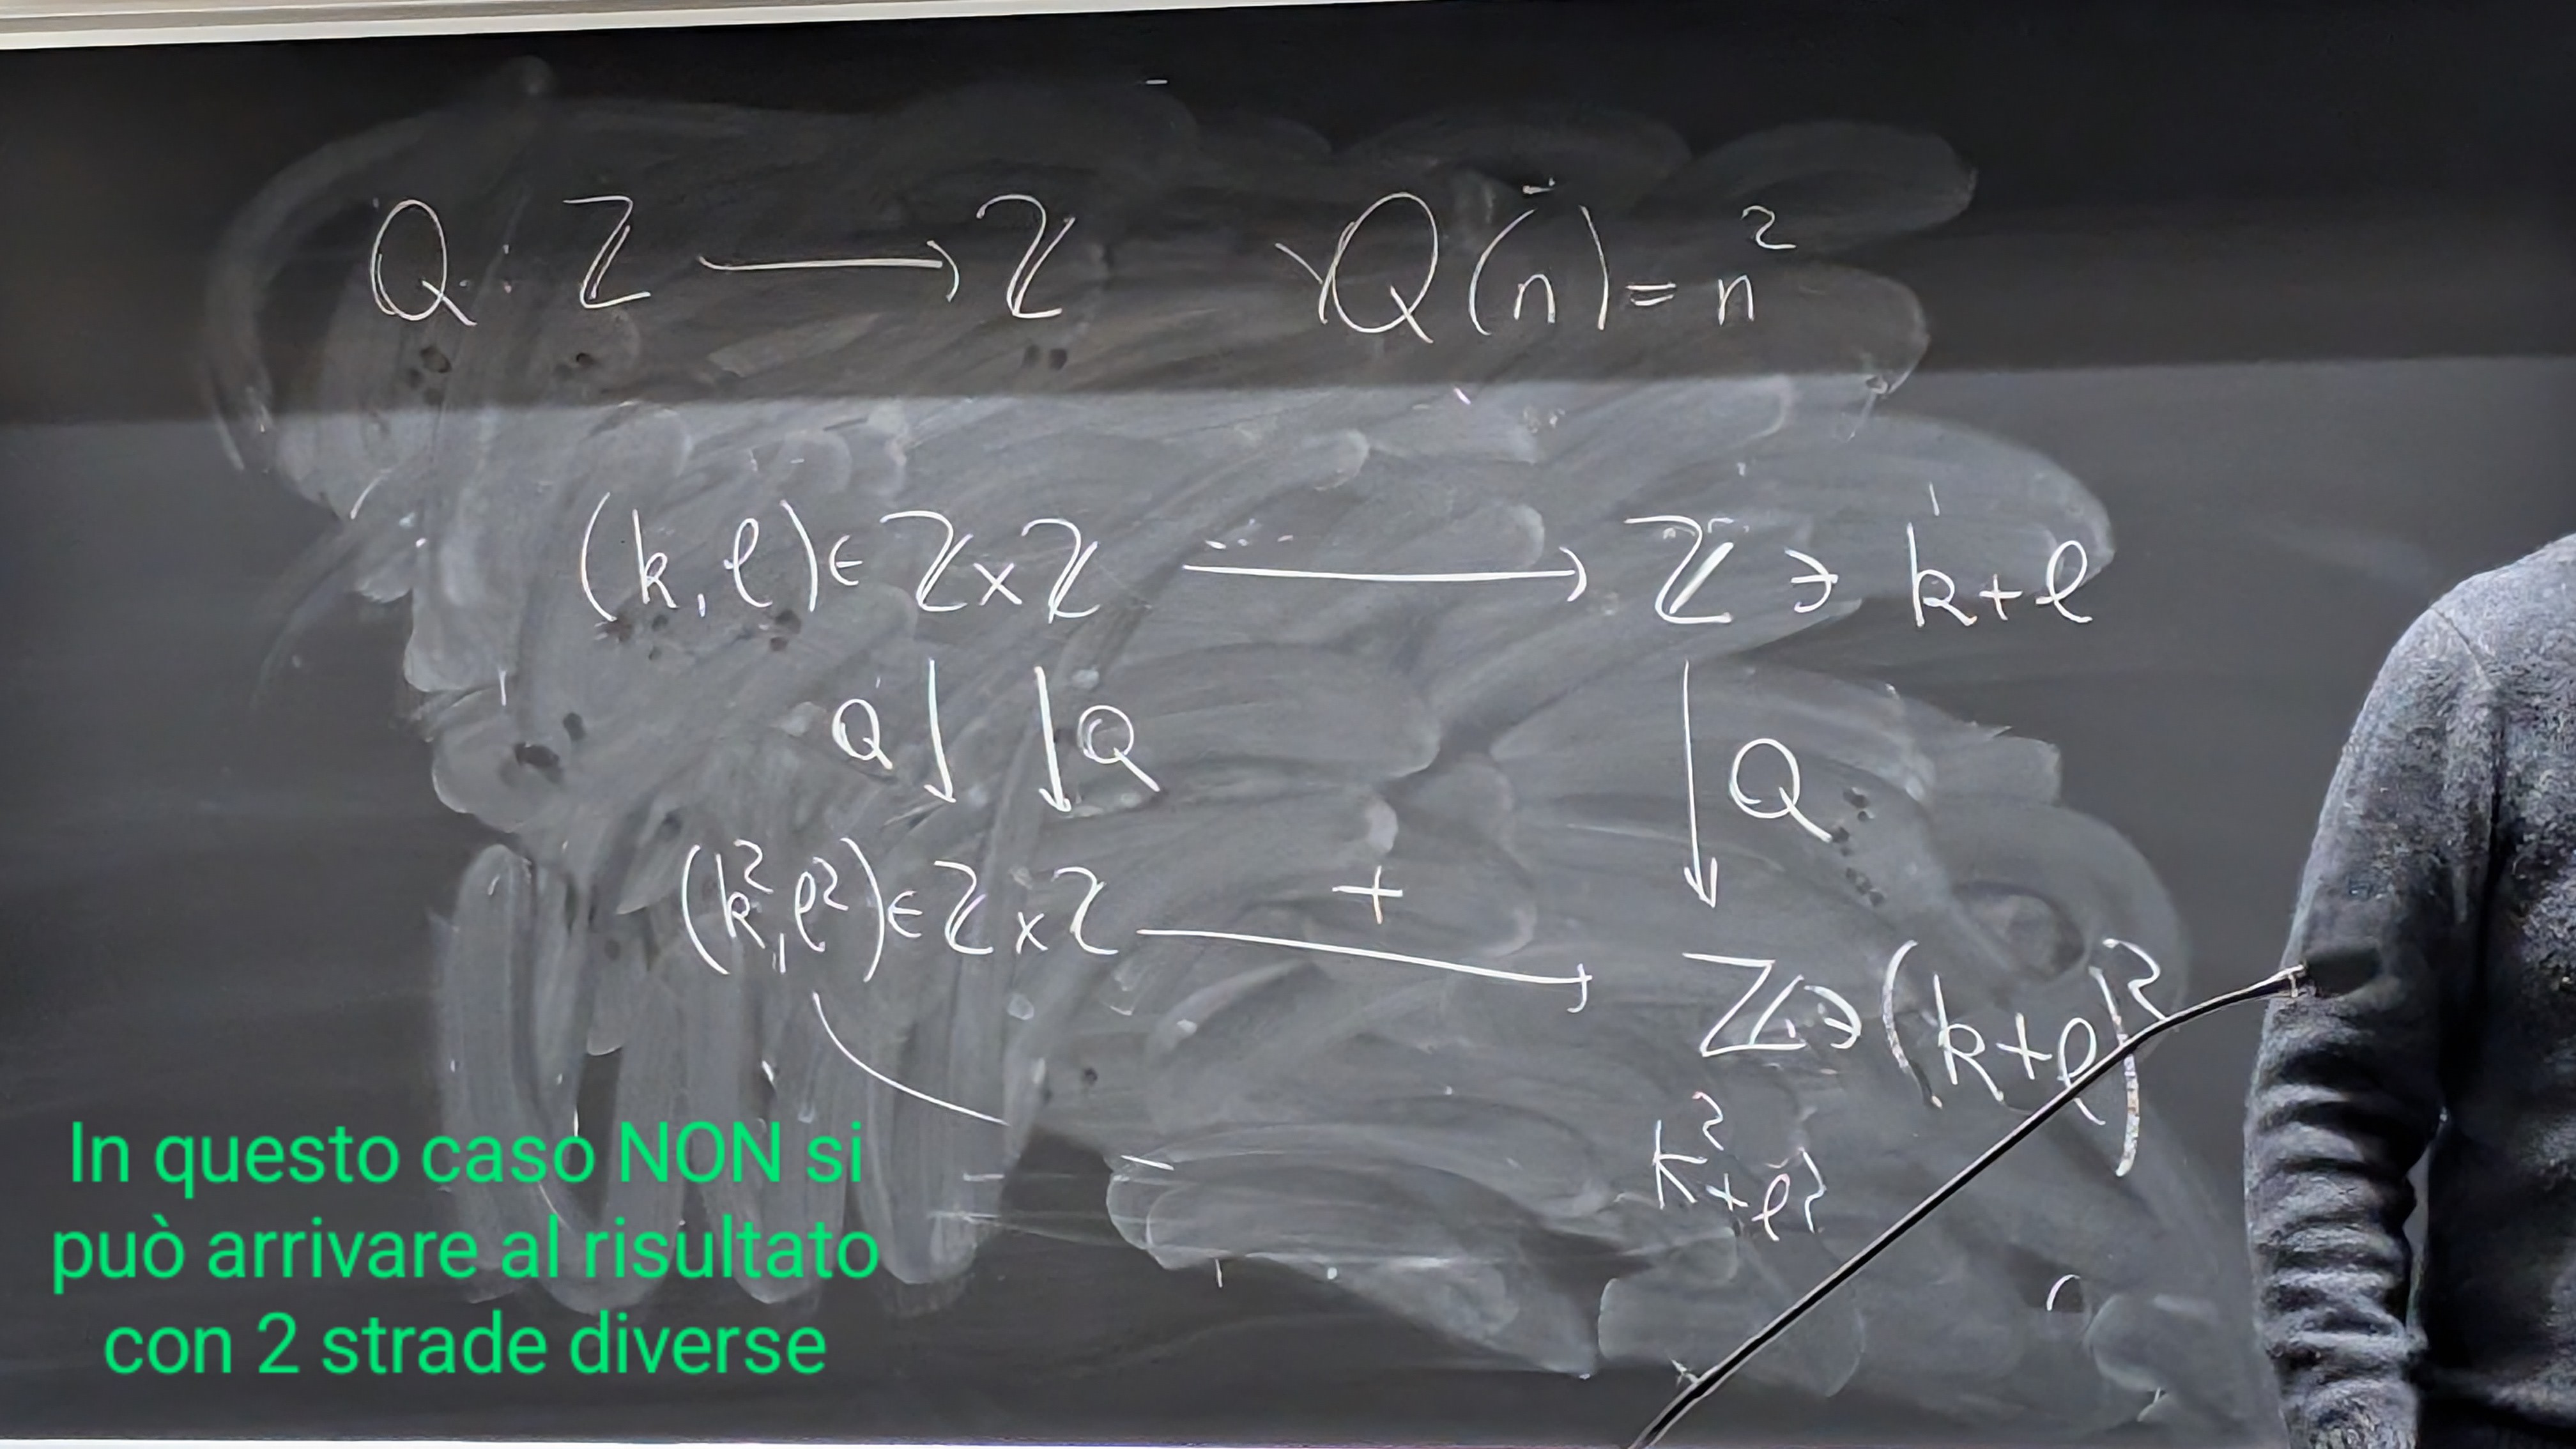 Q : ℤ ⟶ ℤ Q(n) = n²
(k, ℓ) ∈ ℤ × ℤ ⟶ ℤ ∋ k + ℓ
Q ↓ ↓ Q ↓ Q
(k², ℓ²) ∈ ℤ × ℤ + ⟶ ℤ ∋ (k + ℓ)²
k² + ℓ²
In questo caso NON si
può arrivare al risultato
con 2 strade diverse